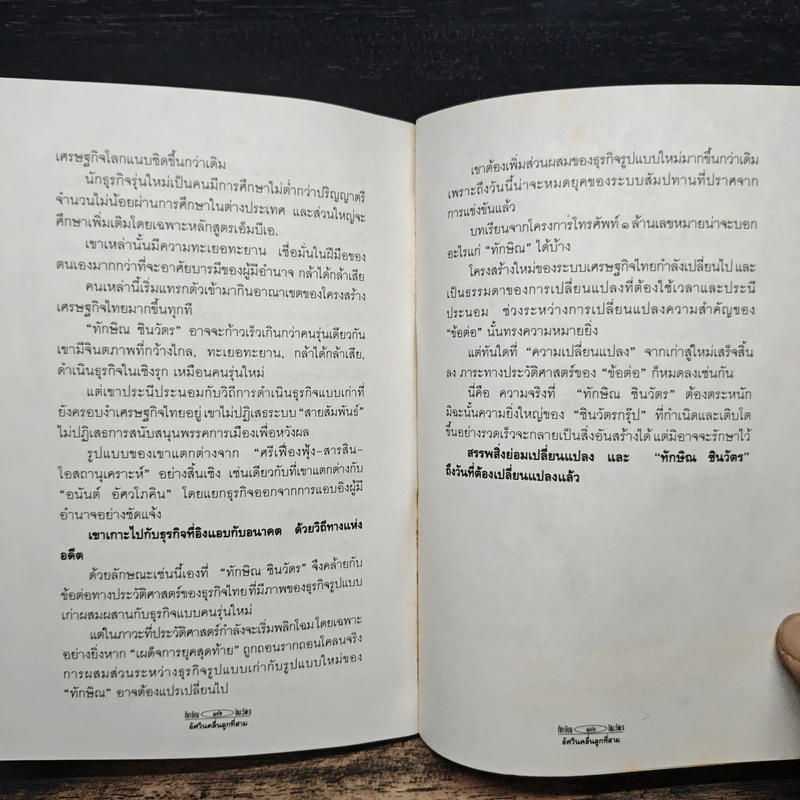 เศรษฐกิจโลกแนบชิดขึ้นกว่าเดิม
นักธุรกิจรุ่นใหม่เป็นคนมีการศึกษาไม่ต่ำกว่าปริญญาตรี
จำนวนไม่น้อยผ่านการศึกษาในต่างประเทศ และส่วนใหญ่จะ
ศึกษาเพิ่มเติมโดยเฉพาะหลักสูตรเอ็มบีเอ.
เขาเหล่านั้นมีความทะเยอทะยาน เชื่อมั่นในฝีมือของ
ตนเองมากกว่าที่จะอาศัยบารมีของผู้มีอำนาจ กล้าได้กล้าเสีย
คนเหล่านี้เริ่มแทรกตัวเข้ามากินอาณาเขตของโครงสร้าง
เศรษฐกิจไทยมากขึ้นทุกที
“ทักษิณ ชินวัตร” อาจจะก้าวเร็วเกินกว่าคนรุ่นเดียวกัน
เขามีจินตภาพที่กว้างไกล, ทะเยอทะยาน, กล้าได้กล้าเสีย,
ดำเนินธุรกิจในเชิงรุก เหมือนคนรุ่นใหม่
แต่เขาประนีประนอมกับวิถีการดำเนินธุรกิจแบบเก่าที่
ยังครอบงำเศรษฐกิจไทยอยู่ เขาไม่ปฏิเสธระบบ “สายสัมพันธ์”
ไม่ปฏิเสธการสนับสนุนพรรคการเมืองเพื่อหวังผล
รูปแบบของเขาแตกต่างจาก “ศรีเฟื่องฟุ้ง-สารสิน-
โอสถานุเคราะห์” อย่างสิ้นเชิง เช่นเดียวกับที่เขาแตกต่างกับ
“อนันต์ อัศวโภคิน” โดยแยกธุรกิจออกจากการแอบอิงผู้มี
อำนาจอย่างชัดแจ้ง
เขาเกาะไปกับธุรกิจที่อิงแอบกับอนาคต ด้วยวิถีทางแห่ง
อดีต
ด้วยลักษณะเช่นนี้เองที่ “ทักษิณ ชินวัตร” จึงคล้ายกับ
ข้อต่อทางประวัติศาสตร์ของธุรกิจไทย ที่มีภาพของธุรกิจรูปแบบ
เก่าผสมผสานกับธุรกิจแบบคนรุ่นใหม่
แต่ในภาวะที่ประวัติศาสตร์กำลังจะเริ่มพลิกโฉม โดยเฉพาะ
อย่างยิ่งหาก “เผด็จการยุคสุดท้าย” ถูกถอนรากถอนโคลนจริง
การผสมส่วนระหว่างธุรกิจรูปแบบเก่ากับรูปแบบใหม่ของ
“ทักษิณ” อาจต้องแปรเปลี่ยนไป
ทักษิณ ชินวัตร
อัศวินคลื่นลูกที่สาม
เขาต้องเพิ่มส่วนผสมของธุรกิจรูปแบบใหม่มากขึ้นกว่าเดิม
เพราะถึงวันนี้น่าจะหมดยุคของระบบสัมปทานที่ปราศจาก
การแข่งขันแล้ว
บทเรียนจากโครงการโทรศัพท์ ๑ ล้านเลขหมายน่าจะบอก
อะไรแก่ “ทักษิณ” ได้บ้าง
โครงสร้างใหม่ของระบบเศรษฐกิจไทยกำลังเปลี่ยนไป และ
เป็นธรรมดาของการเปลี่ยนแปลงที่ต้องใช้เวลาและประนี
ประนอม ช่วงระหว่างการเปลี่ยนแปลงความสำคัญของ
“ข้อต่อ” นั้นทรงความหมายยิ่ง
แต่ทันใดที่ “ความเปลี่ยนแปลง” จากเก่าสู่ใหม่เสร็จสิ้น
ลง ภาระทางประวัติศาสตร์ของ “ข้อต่อ” ก็หมดลงเช่นกัน
นี่คือ ความจริงที่ “ทักษิณ ชินวัตร” ต้องตระหนัก
มิฉะนั้นความยิ่งใหญ่ของ “ชินวัตรกรุ๊ป” ที่กำเนิดและเติบโต
ขึ้นอย่างรวดเร็วจะกลายเป็นสิ่งอันสร้างได้ แต่มิอาจจะรักษาไว้
สรรพสิ่งย่อมเปลี่ยนแปลง และ “ทักษิณ ชินวัตร”
ถึงวันที่ต้องเปลี่ยนแปลงแล้ว
ทักษิณ ชินวัตร
อัศวินคลื่นลูกที่สาม